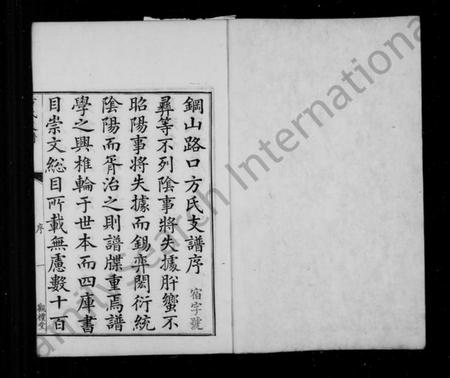 鋼山路口方氏支譜序 宿字號
彞等不列陰事將失據肸蠁不
昭陽事將失據而錫弈閎衍統
陰陽而胥治之則譜牒重焉譜
學之興椎輪于世本而四庫書
目崇文緫目所載無慮數十百
序
一
敦禮堂
Family Search International